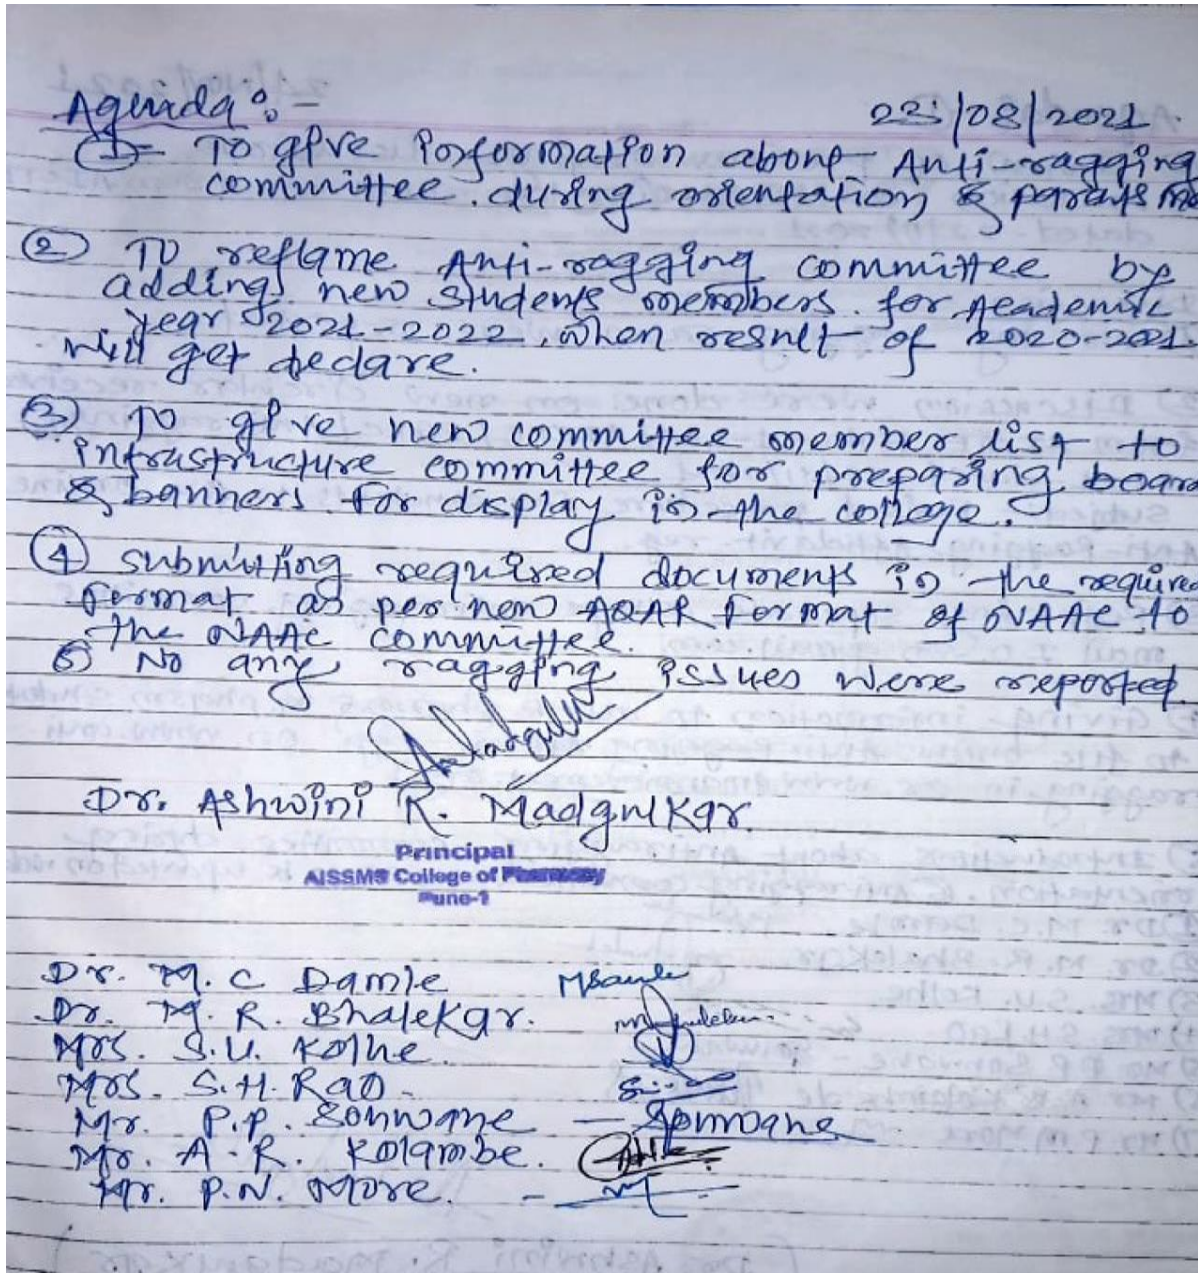 Agenda :-
23/08/2021.
① To give information about Anti-ragging
committee during orientation & parents me
② To reframe Anti-ragging committee by
adding new students members for Academic
year 2021-2022, when result of 2020-2021.
will get declare.
③ To give new committee member list to
infrastructure committee for preparing board
& banners for display in the college.
④ Submitting required documents in the require
format as per new AQAR format of NAAC to
the NAAC committee.
⑤ No any ragging issues were reported.
Dr. Ashwini R. Madgulkar.
Principal
AISSMS College of Pharmacy
Pune-1
Dr. M. C Damle
Dr. M. R. Bhalekar.
Mrs. S.U. Kolhe.
Mrs. S.H. Rao.
Mr. P.P. Sonwane - Spmwane
Mr. A.R. Kolambe.
Mr. P.N. More. -